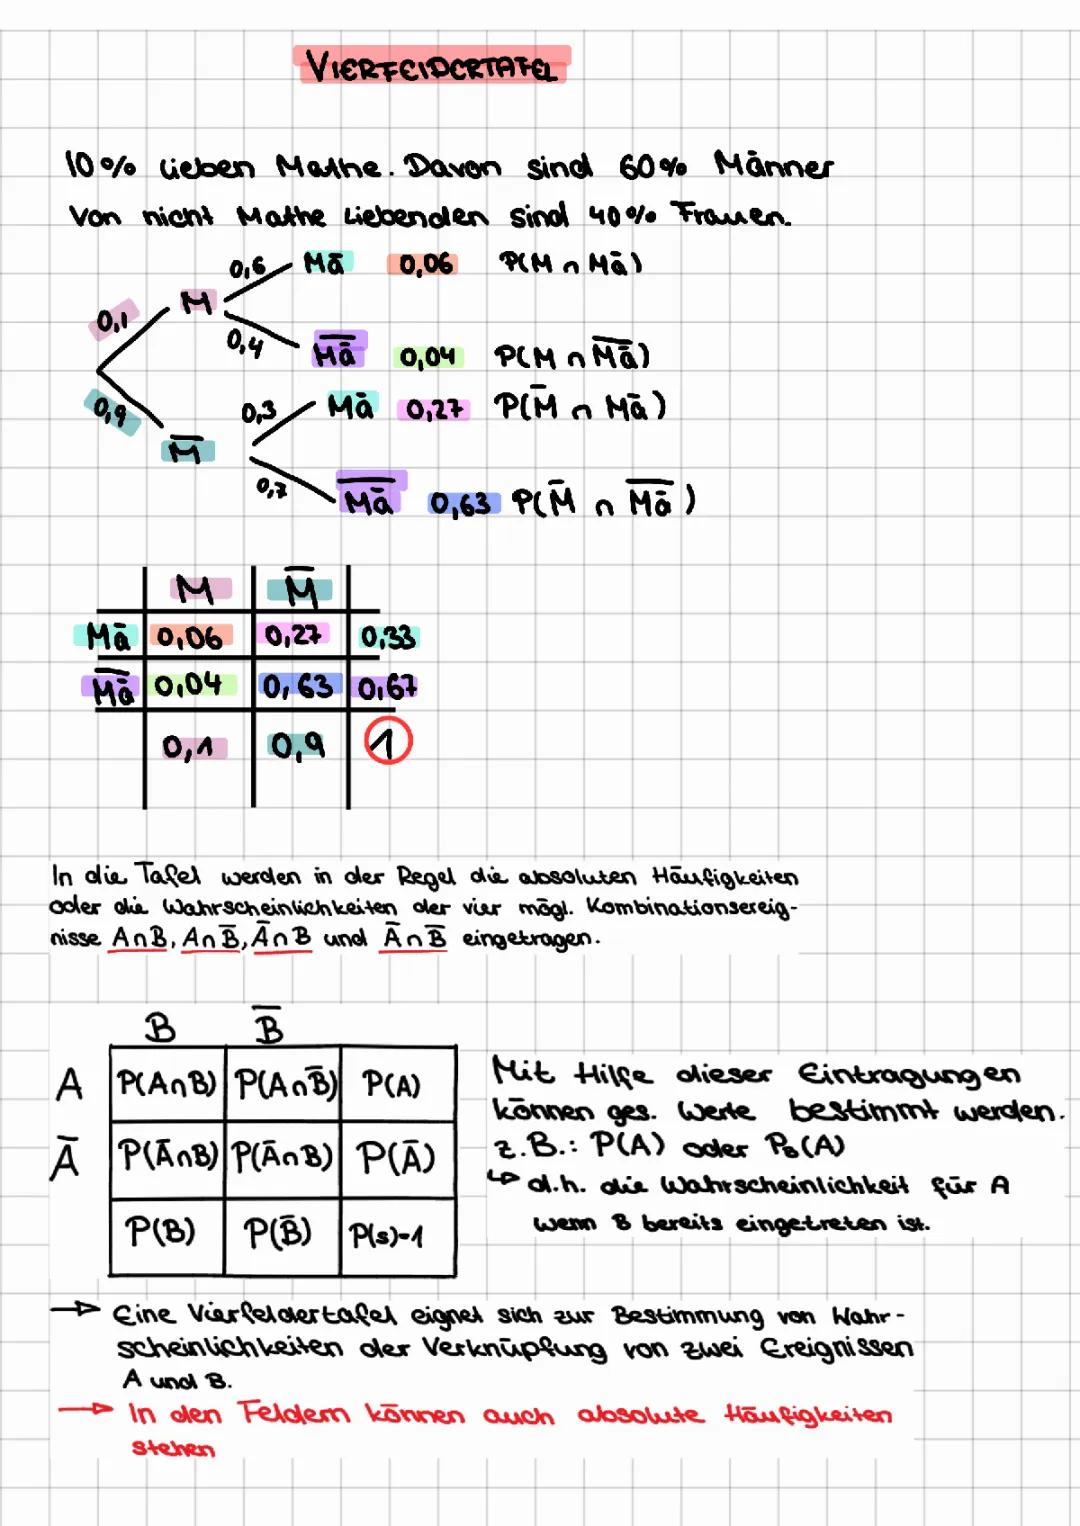 VIERFELDERTAFEL
10% lieben Mathe. Davon sind 60% Männer
Von nicht Mathe Liebenden sind 40% Frauen.
0,6 Mä 0,06 P(M ∩ Mä)
0,1 M
0,4 M̅ä̅ 0,04 P(M ∩ M̅ä̅)
0,9 M̅ 0,3 Mä 0,27 P(M̅ ∩ Mä)
0,7 M̅ä̅ 0,63 P(M̅ ∩ M̅ä̅)
M M̅
Mä 0,06 0,27 0,33
M̅ä̅ 0,04 0,63 0,67
0,1 0,9 1
In die Tafel werden in der Regel die absoluten Häufigkeiten
oder die Wahrscheinlichkeiten der vier mögl. Kombinationsereig-
nisse A∩B, A∩B̅, A̅∩B und A̅∩B̅ eingetragen.
B B̅
A P(A∩B) P(A∩B̅) P(A)
A̅ P(A̅∩B) P(A̅∩B) P(A̅)
P(B) P(B̅) P(s)-1
Mit Hilfe dieser Eintragungen
können ges. Werte bestimmt werden.
z.B.: P(A) oder P_B(A)
↳ d.h. die Wahrscheinlichkeit für A
wenn B bereits eingetreten ist.
→ Eine Vierfeldertafel eignet sich zur Bestimmung von Wahr-
scheinlichkeiten der Verknüpfung von zwei Ereignissen
A und B.
→ In den Feldern können auch absolute Häufigkeiten
stehen